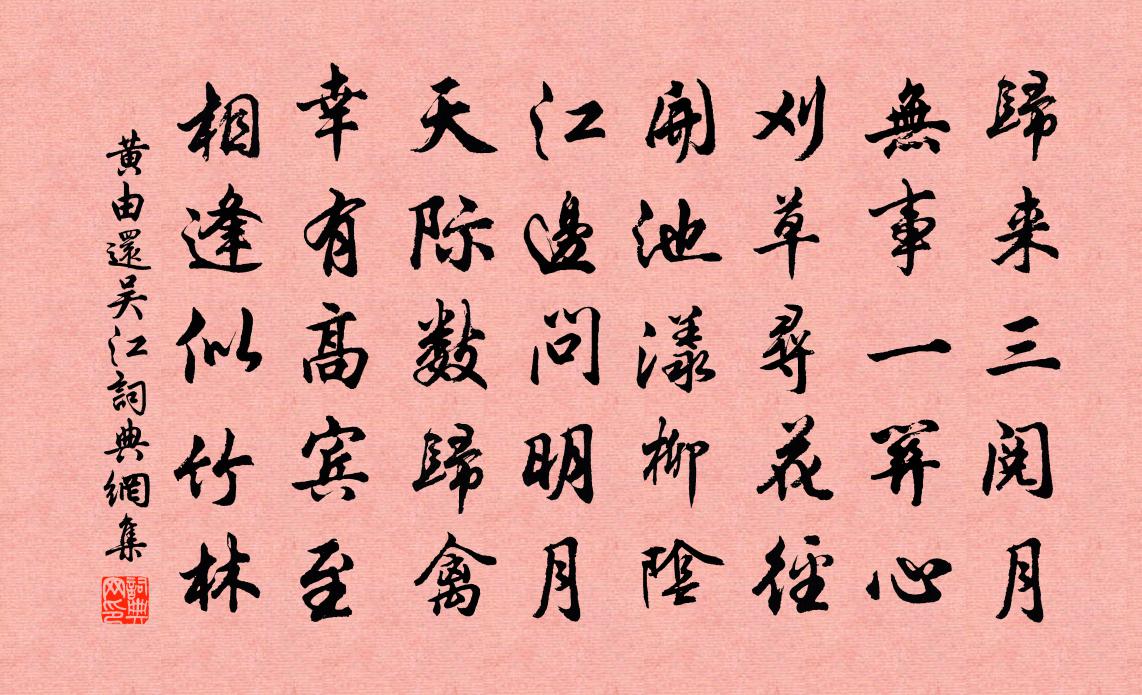 歸来三閱月
無事一関心
刈草尋花徑
開池漾柳陰
江邊問明月
天际数歸禽
幸有高宾至
相逢似竹林
黄由還吴江詞典網集
詞典网印